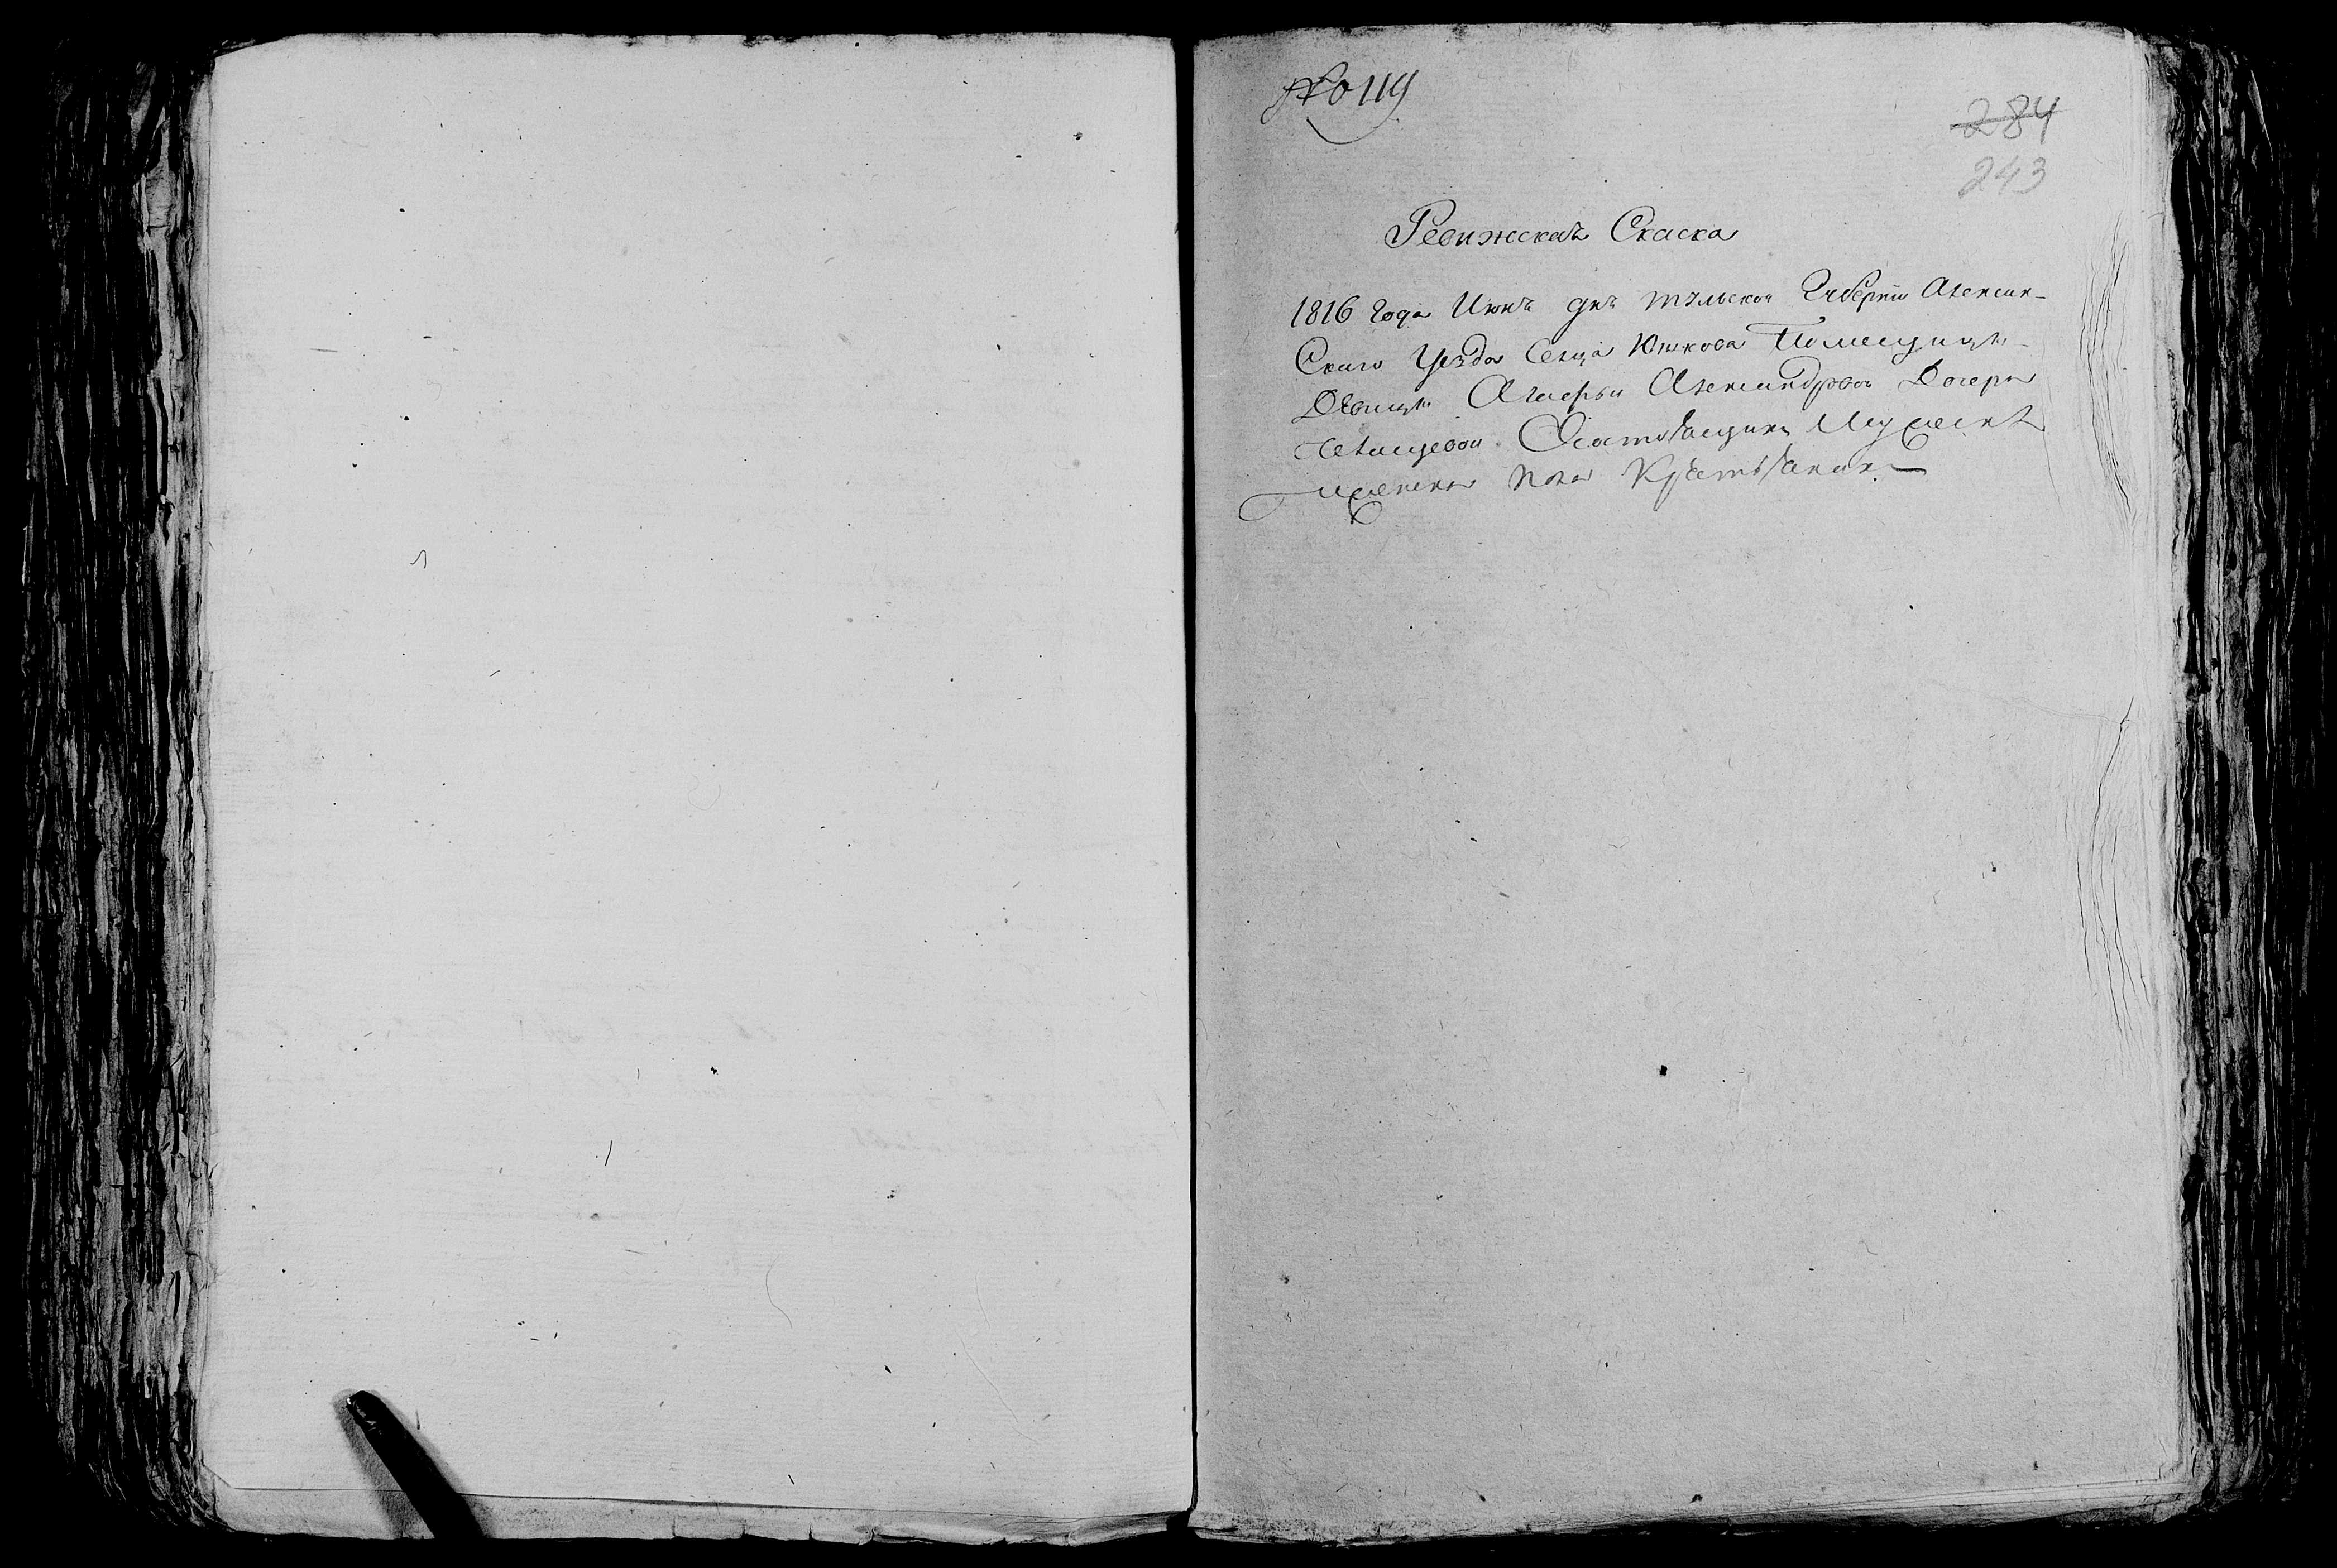 № 119
284
243
Ревижская Скаска
1816 Года Июня дня тульской Губернии Алексин-
Скаго Уезда Сельца Юшкова Помещицы
Девицы Александровой Дочери
состоящихъ Мужеска
и женска пола Крестьянах